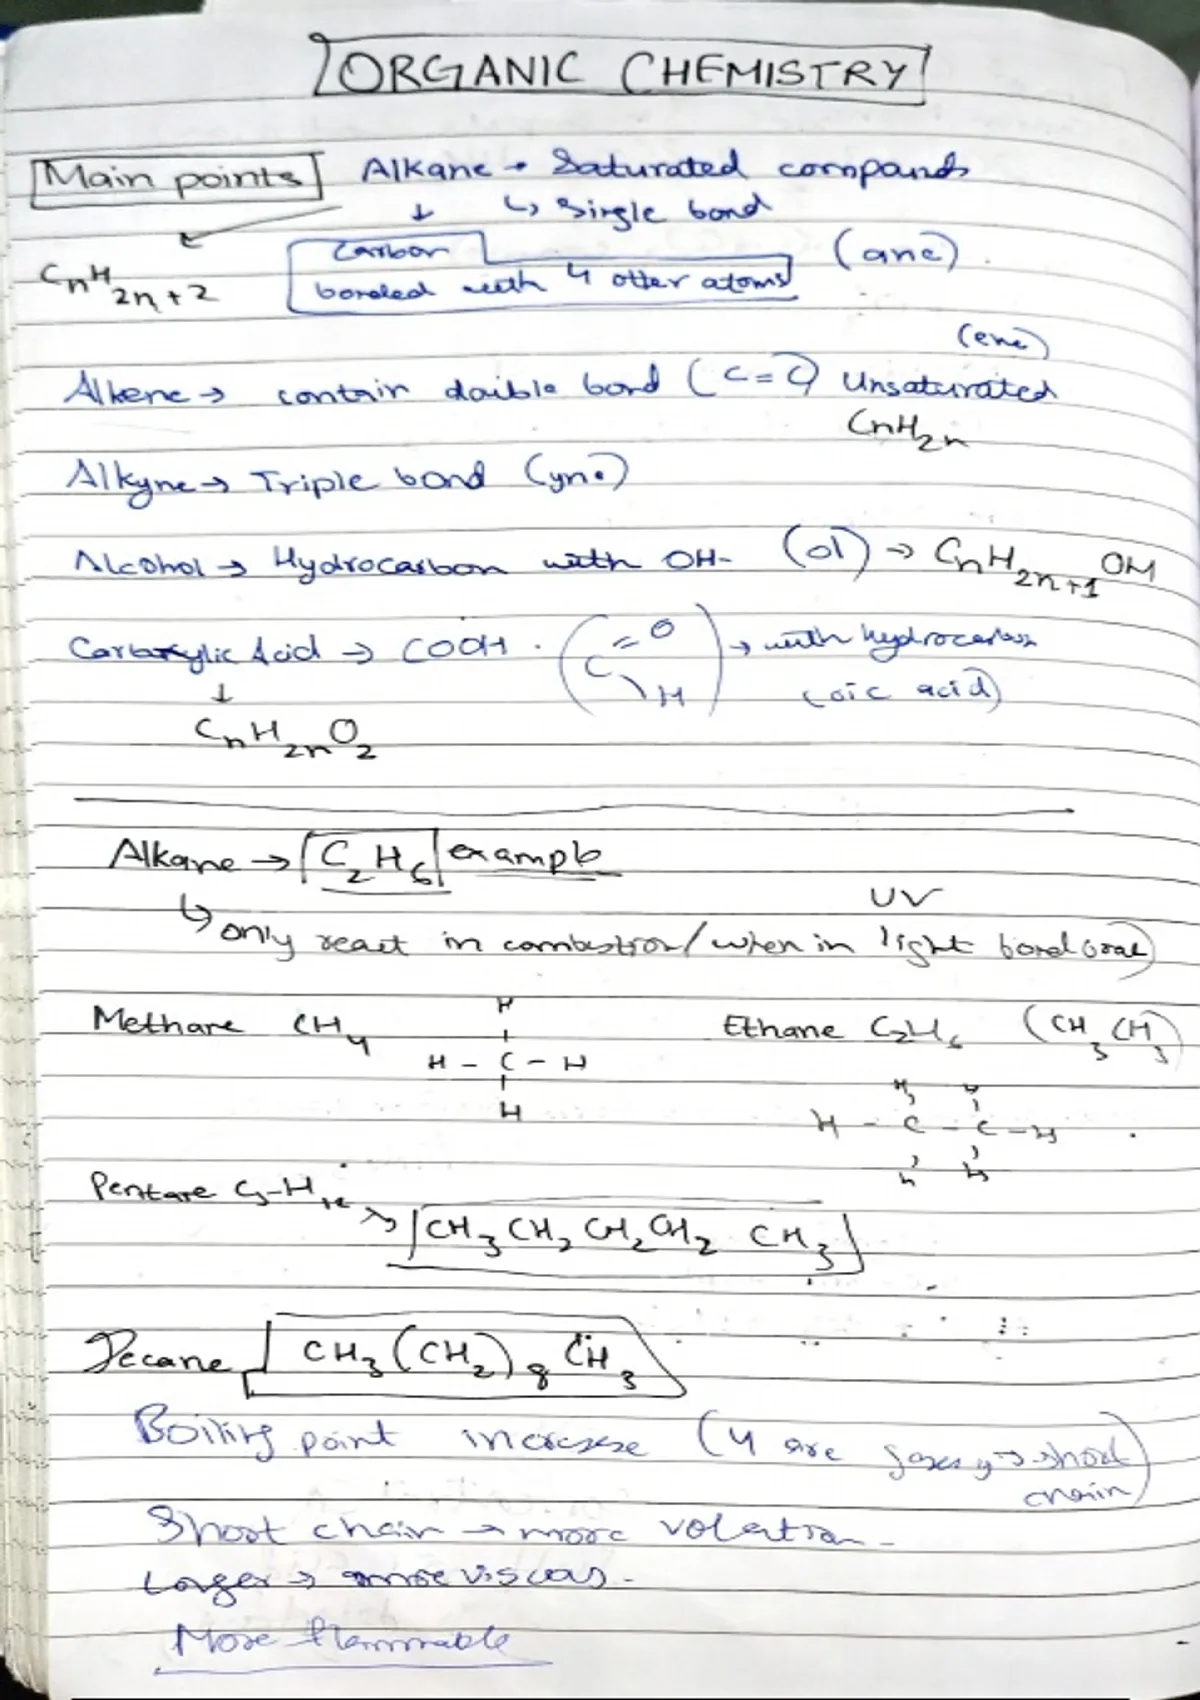 ORGANIC CHEMISTRY
Main points Alkane → Saturated compounds
↓ ↳ Single bond
CnH2n+2 Carbon (ane).
bonded with 4 other atoms
(ene)
Alkene → contain double bond (C=C) Unsaturated
CnH2n
Alkyne → Triple bond (yne)
Alcohol → Hydrocarbon with OH- (ol) → CnH2n+1 OH
Carboxylic Acid → COOH. (C=O \H) → with hydrocarbon
↓ (oic acid)
CnH2nO2
Alkane → C2H6 example
UV
↳ only react in combustion/when in light
Methane CH4 Ethane C2H6 (CH3CH3)
H
H - C - H
H
H H
H - C - C - H
H H
Pentane C5H12
→ CH3CH2CH2CH2CH3
Decane CH3(CH2)8CH3
Boiling point increase (4 are → short
chain)
Short chain → more
Longer → more viscous.
More flammable